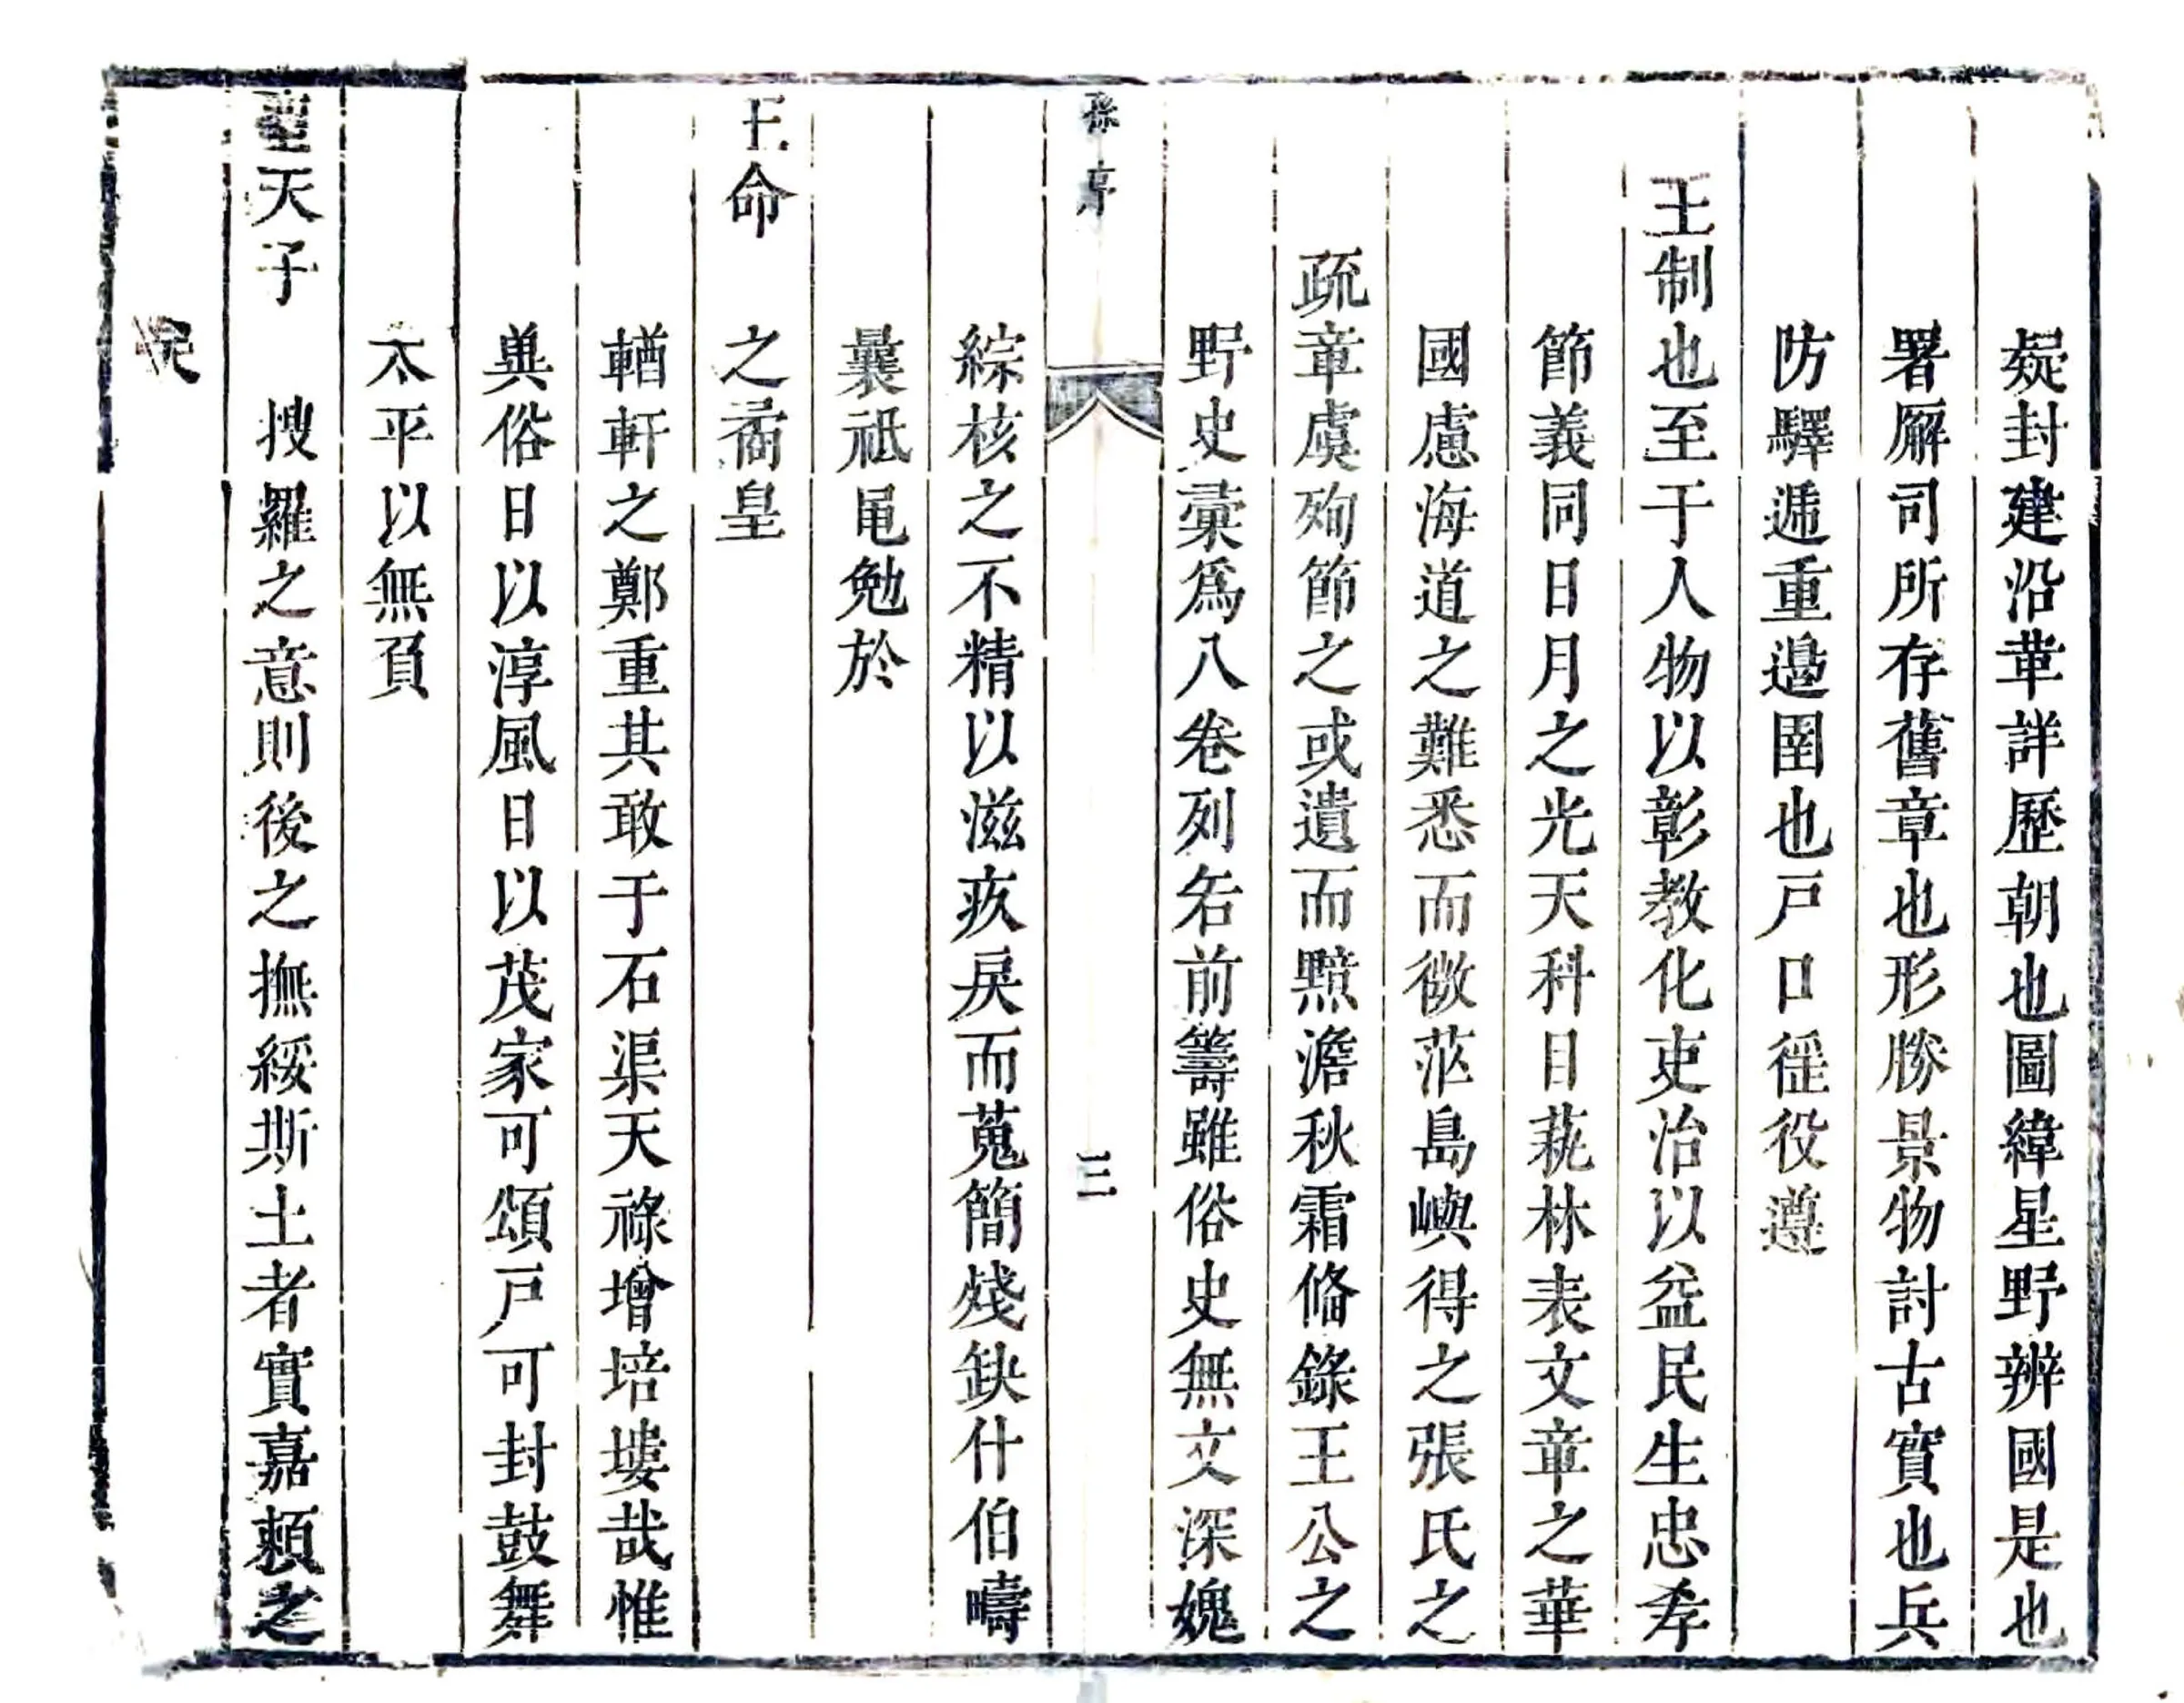 疑封建沿革詳歷朝也圖緯星野辨國是也
署廨司所存舊章也形勝景物討古實也兵
防驛逓重邉圉也戸口徭役遵
王制也至于人物以彰教化吏治以益民生忠孝
節義同日月之光天科目蓺林表文章之華
國慮海道之難悉而微茫島嶼得之張氏之
疏章虞殉節之或遺而黯澹秋霜俻錄王公之
野史彚爲八卷列名前籌雖俗史無文深媿
孫序
三
綜核之不精以滋疚戾而蒐簡殘缺什伯疇
曩祗黽勉於
王命　之矞皇
輶軒之鄭重其敢于石渠天祿增培塿哉惟
與俗日以淳風日以茂家可頌戸可封鼓舞
太平以無負
聖天子　搜羅之意則後之撫綏斯土者實嘉頼之